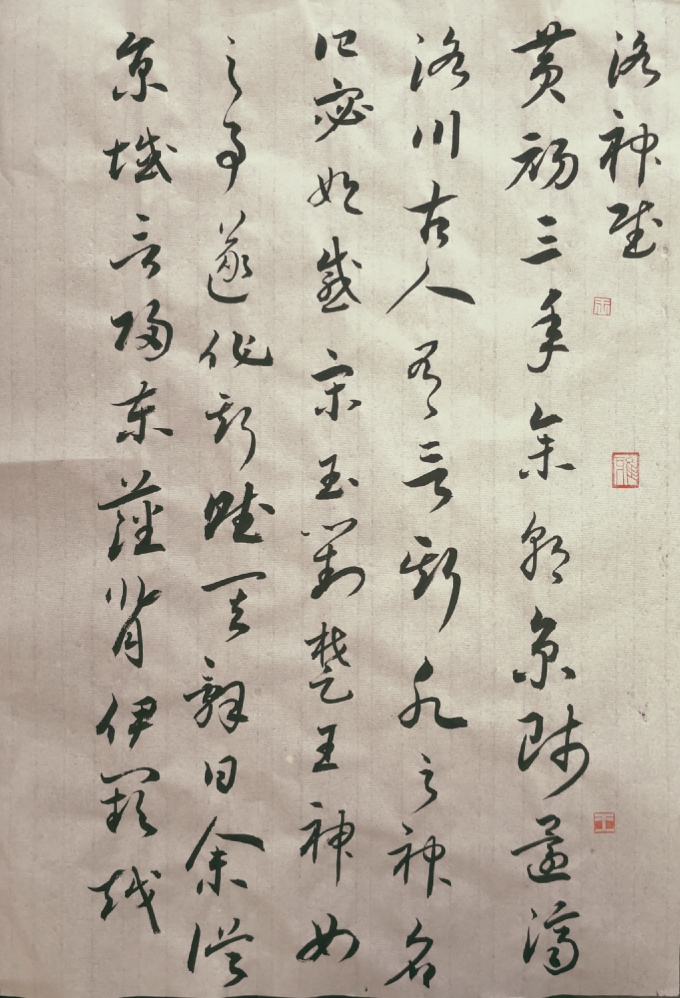 洛神賦
黄初三年余朝京師還濟
洛川古人有言斯水之神名
曰宓妃感宋玉對楚王神女
之事遂作斯賦其辭曰余從
京域言歸東藩背伊闕越